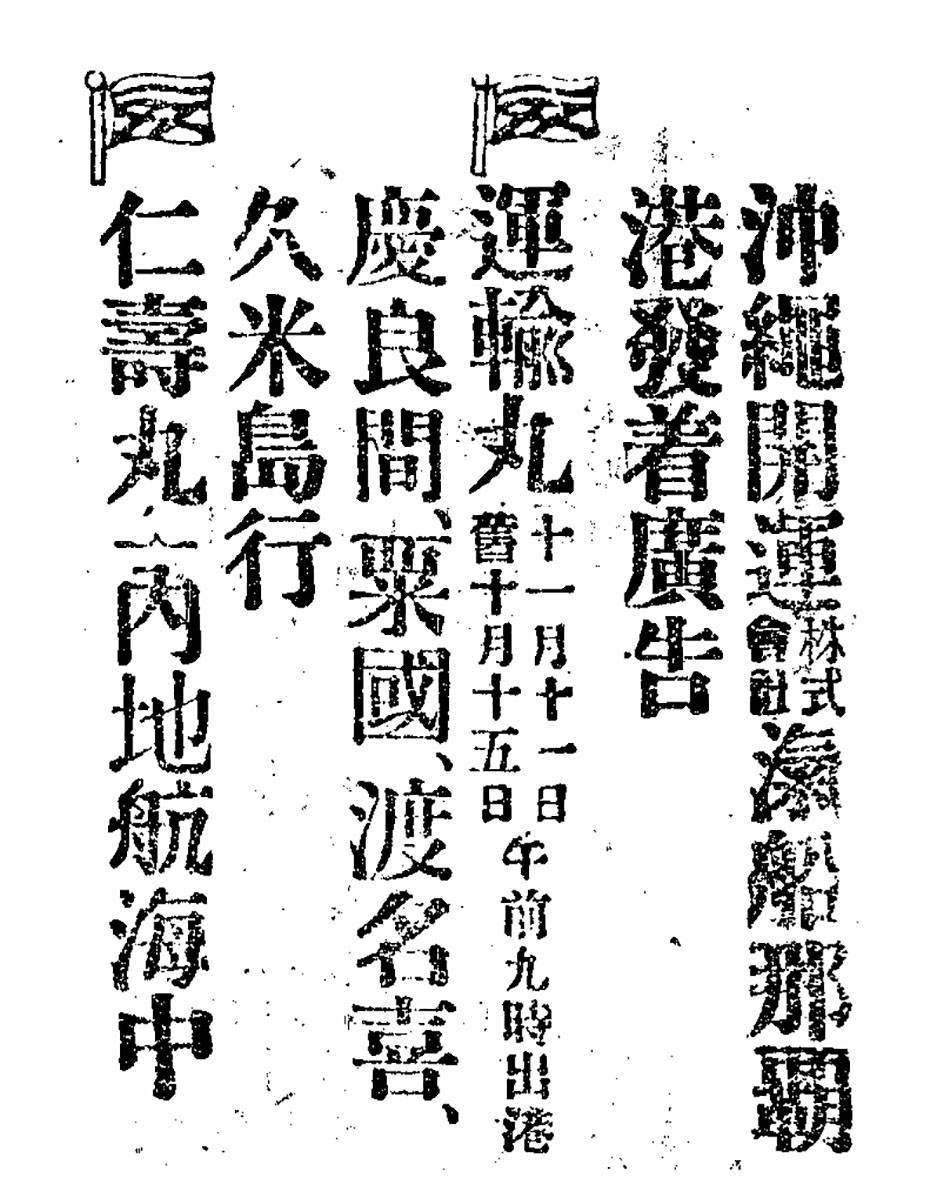 沖繩開運株式會社滊船那覇
港發着廣告
運輸丸 十一月十一日 舊十月十五日 午前九時出港
慶良間、粟國、渡名喜、
久米島行
仁壽丸 一內地航海中